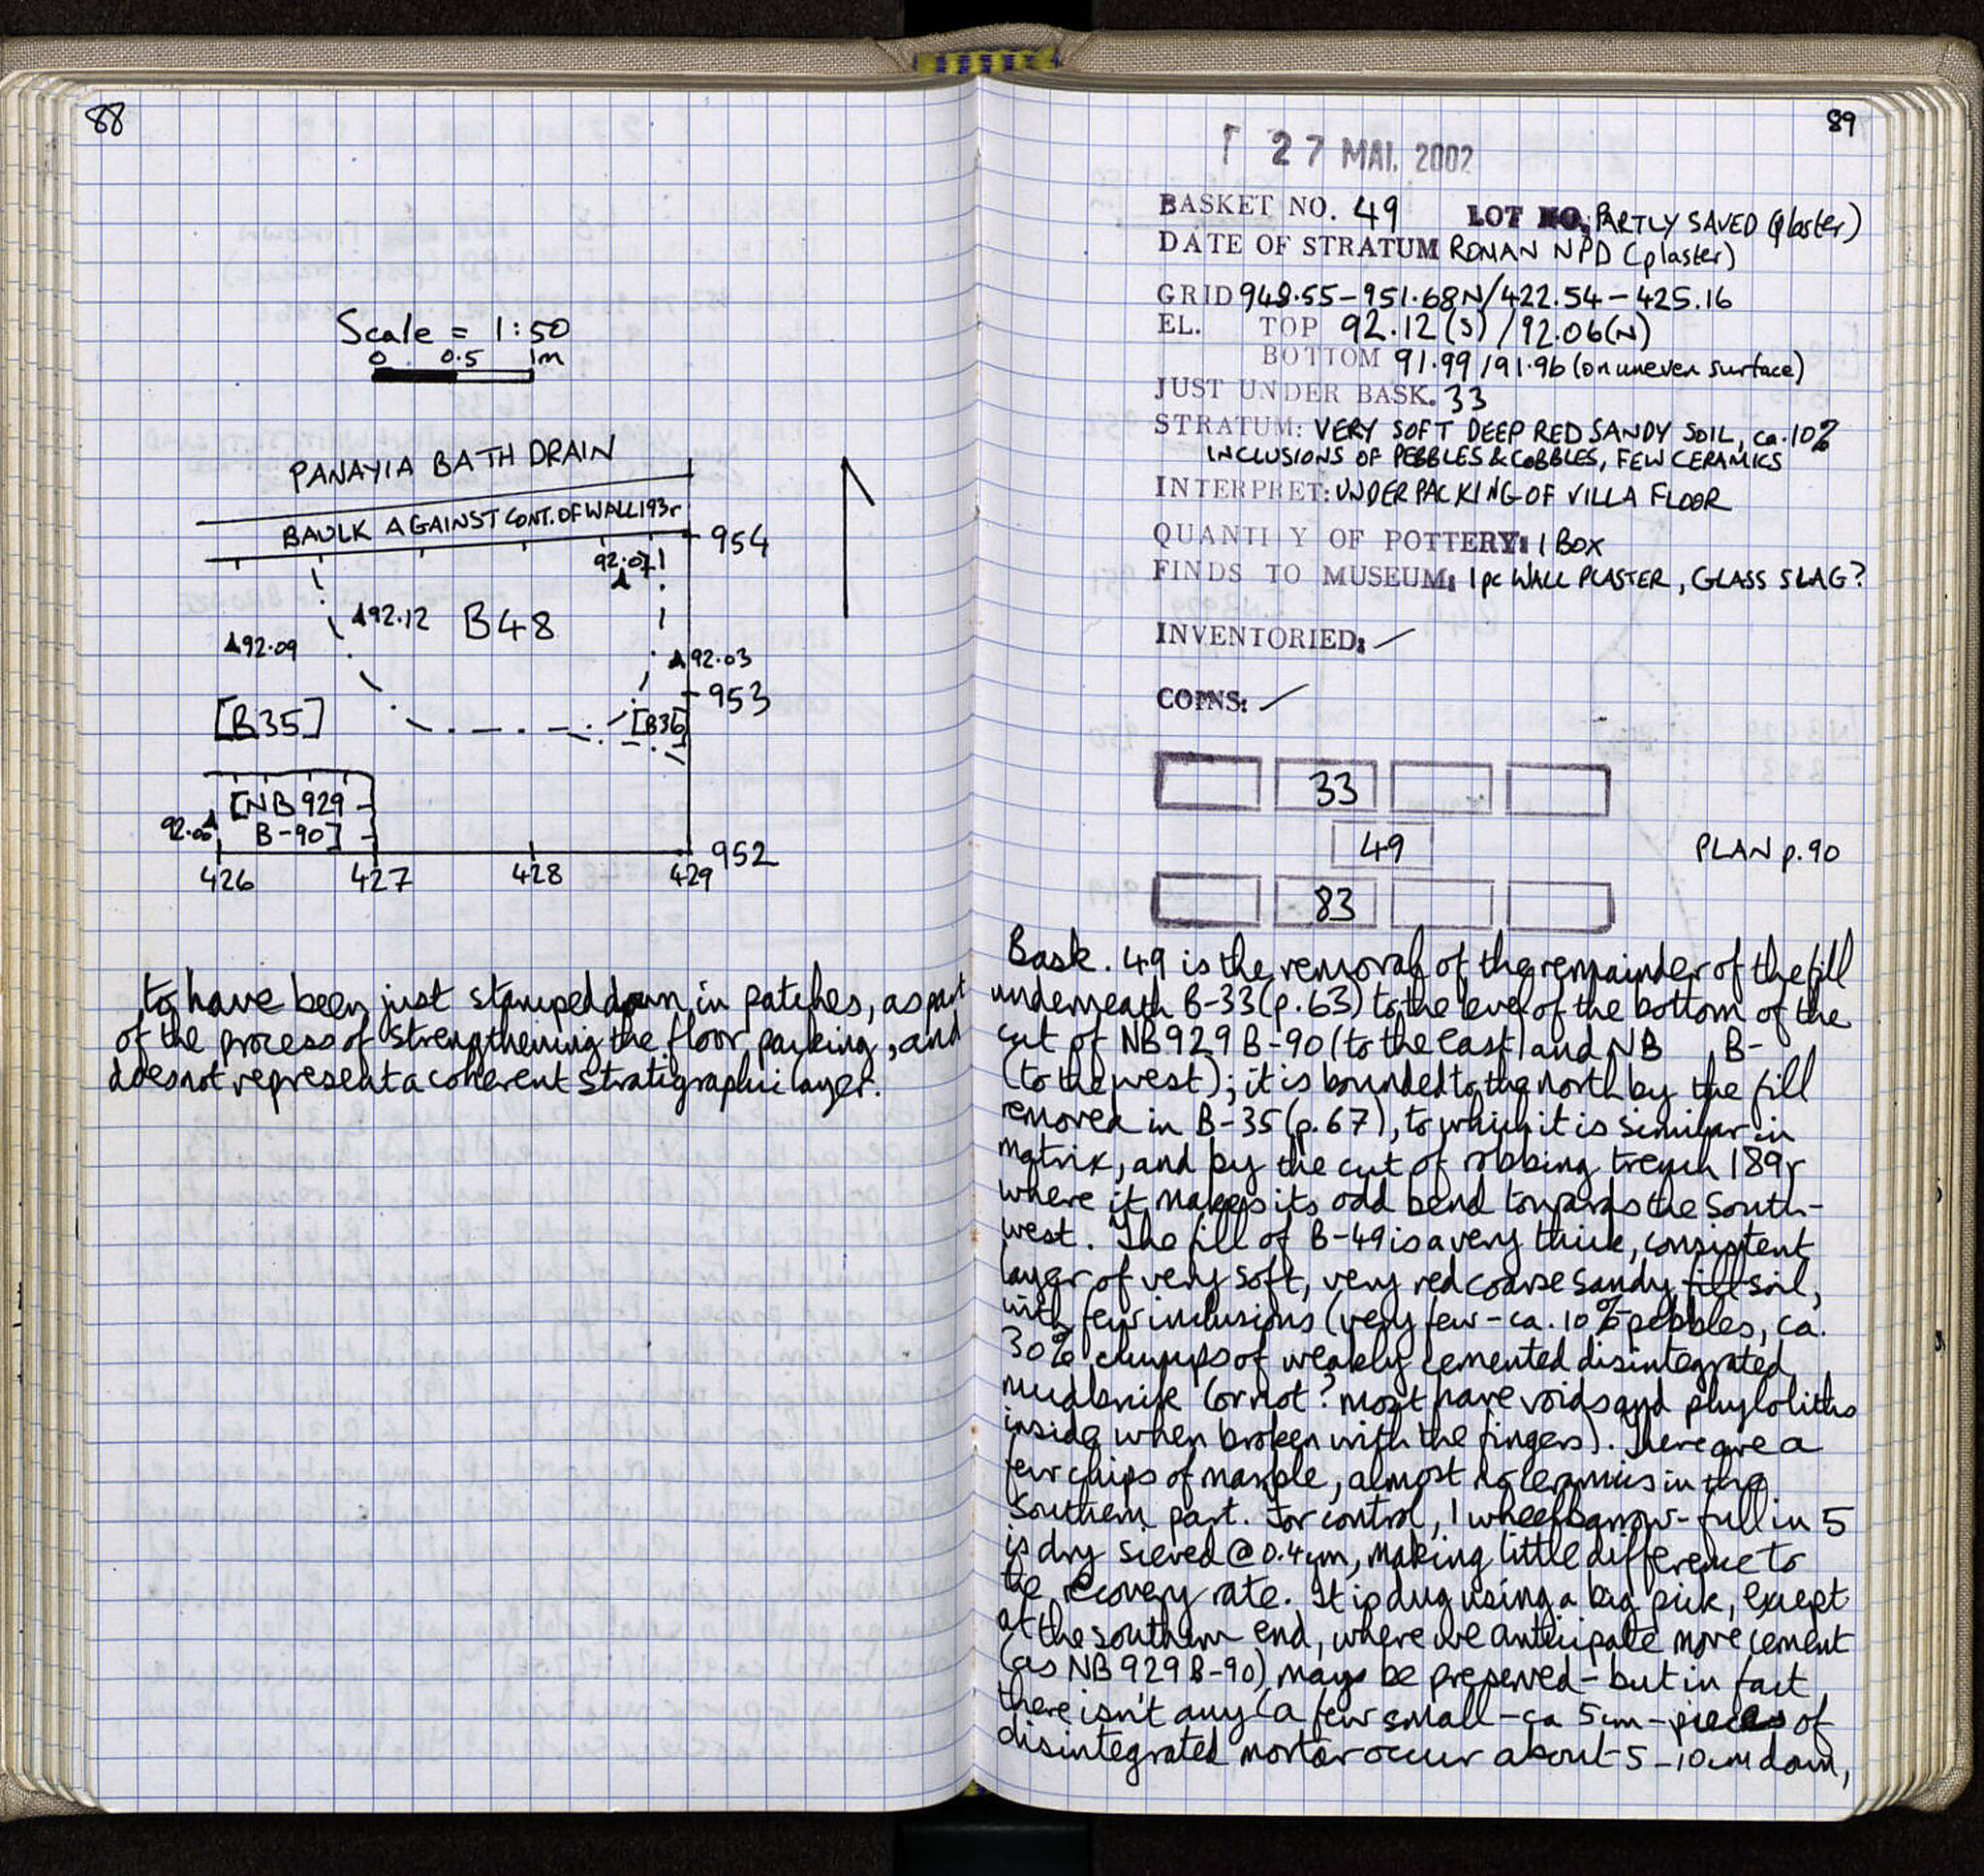 88
Scale = 1:50
0 0.5 1m
PANAYIA BATH DRAIN
BAULK AGAINST CONT. OF WALL 193r
954
92.07
92.12
B48
92.09
92.03
953
[B35]
[B36]
[NB 929
B-90]
92.00
952
426 427 428 429
to have been just stamped down in patches, as part
of the process of strengthening the floor packing, and
does not represent a coherent stratigraphic layer.
89
27 MAI. 2002
BASKET NO. 49 LOT NO. PARTLY SAVED (plaster)
DATE OF STRATUM ROMAN NPD (plaster)
GRID 948.55-951.68N/422.54-425.16
EL. TOP 92.12 (S) / 92.06(N)
BOTTOM 91.99/91.96 (on uneven surface)
JUST UNDER BASK. 33
STRATUM: VERY SOFT DEEP RED SANDY SOIL, ca. 10%
INCLUSIONS OF PEBBLES & COBBLES, FEW CERAMICS
INTERPRET: UNDERPACKING OF VILLA FLOOR
QUANTITY OF POTTERY: 1 BOX
FINDS TO MUSEUM: 1pc WALL PLASTER, GLASS SLAG?
INVENTORIED:
COINS:
33
49
PLAN p.90
83
Bask. 49 is the removal of the remainder of the fill
underneath B-33 (p.63) to the level of the bottom of the
cut of NB929 B-90 (to the east) and NB B-
(to the west); it is bounded to the north by the fill
removed in B-35 (p.67), to which it is similar in
matrix, and by the cut of robbing trench 189r
where it makes its odd bend towards the South-
west. The fill of B-49 is a very thick, consistent
layer of very soft, very red coarse sandy fill soil,
with few inclusions (very few - ca. 10% pebbles, ca.
30% clumps of weakly cemented disintegrated
mudbrick (or not? most have voids and phytoliths
inside when broken with the fingers). There are a
few chips of marble, almost no ceramics in the
southern part. For control, 1 wheelbarrow-full in 5
is dry sieved @ 0.4cm, making little difference to
the recovery rate. It is dug using a big pick, except
at the southern end, where we anticipate more cement
(as NB 929 B-90) may be preserved - but in fact
there isn't any (a few small - ca 5cm - pieces of
disintegrated mortar occur about 5-10cm down,